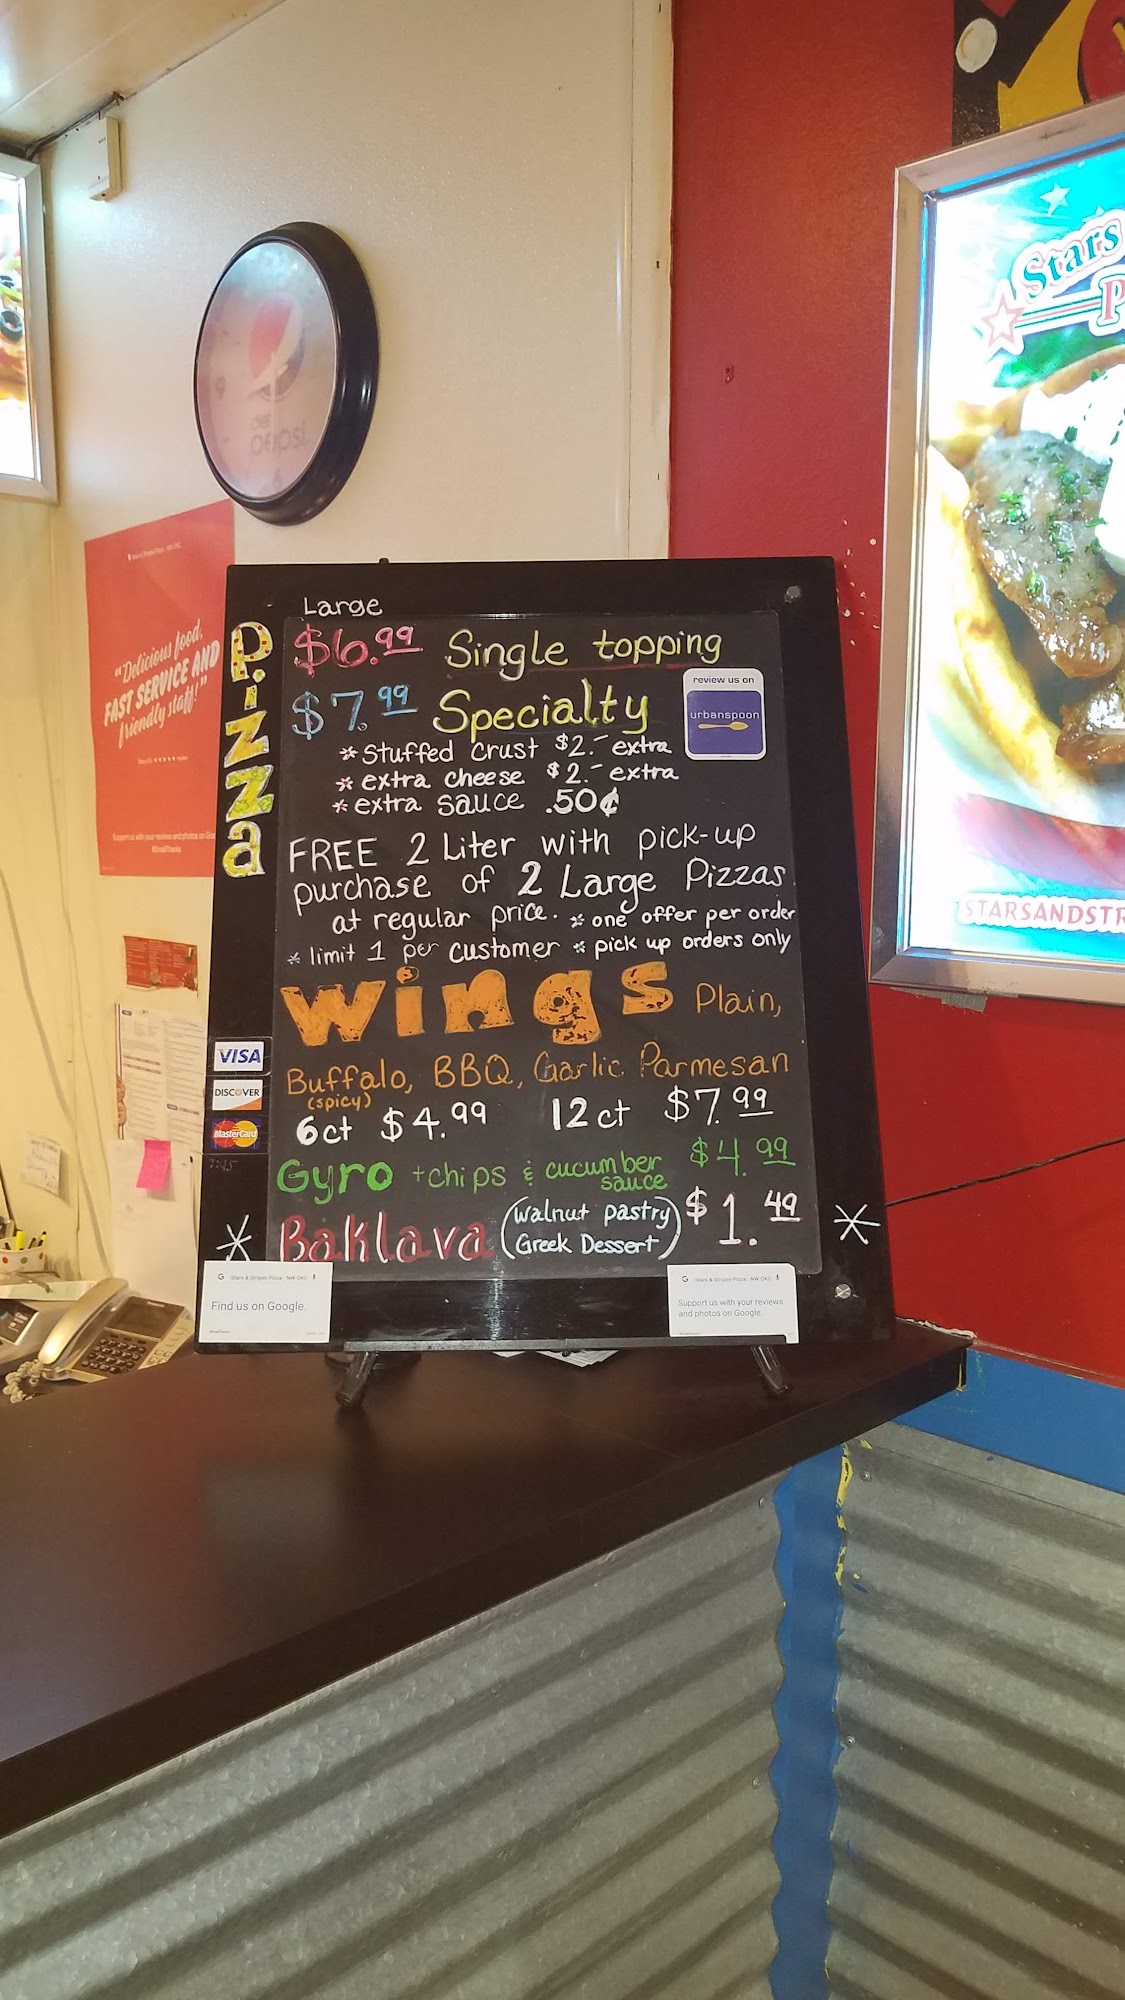 Large
Pizza
$6.99 Single topping
$7.99 Specialty
* Stuffed Crust $2.- extra
* extra cheese $2.- extra
* extra sauce .50¢
review us on
urbanspoon
FREE 2 Liter with pick-up
purchase of 2 Large Pizzas
at regular price. * one offer per order
* limit 1 per customer * pick up orders only
Wings Plain,
Buffalo, BBQ, Garlic Parmesan
(spicy)
6ct $4.99 12ct $7.99
Gyro + chips & cucumber sauce $4.99
* Baklava (Walnut pastry Greek Dessert) $1.49 *
VISA
DISCOVER
MasterCard
Stars & Stripes Pizza - NW OKC
Find us on Google.
Stars & Stripes Pizza - NW OKC
Support us with your reviews
and photos on Google.
Stars & Stripes Pizza - NW OKC
"Delicious food,
FAST SERVICE AND
friendly staff!"
Support us with your reviews and photos on Goo
#SmallThanks
diet
pepsi
Stars
P
STARSANDSTR